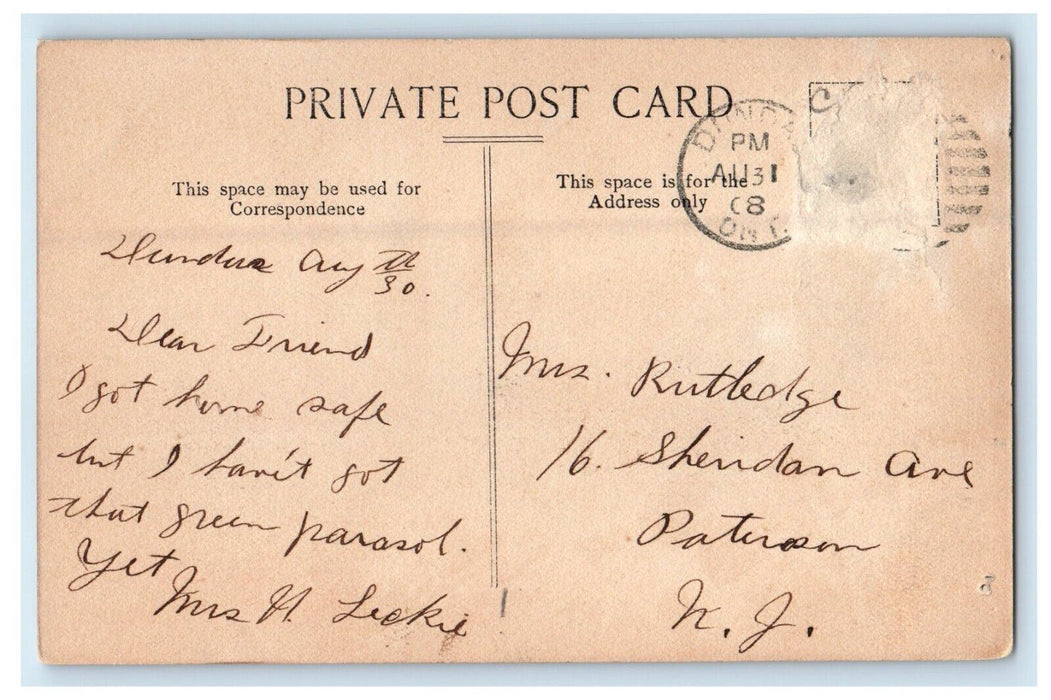 PRIVATE POST CARD
This space may be used for
Correspondence
This space is for the
Address only
PM
AU 31
08
ONT.
Dundas Aug 30th.
Dear Friend
I got home safe
but I hav'nt got
that green parasol.
Yet
Mrs H. Leckie
Mrs. Rutledge
16. Sheridan Ave
Paterson
N. J.